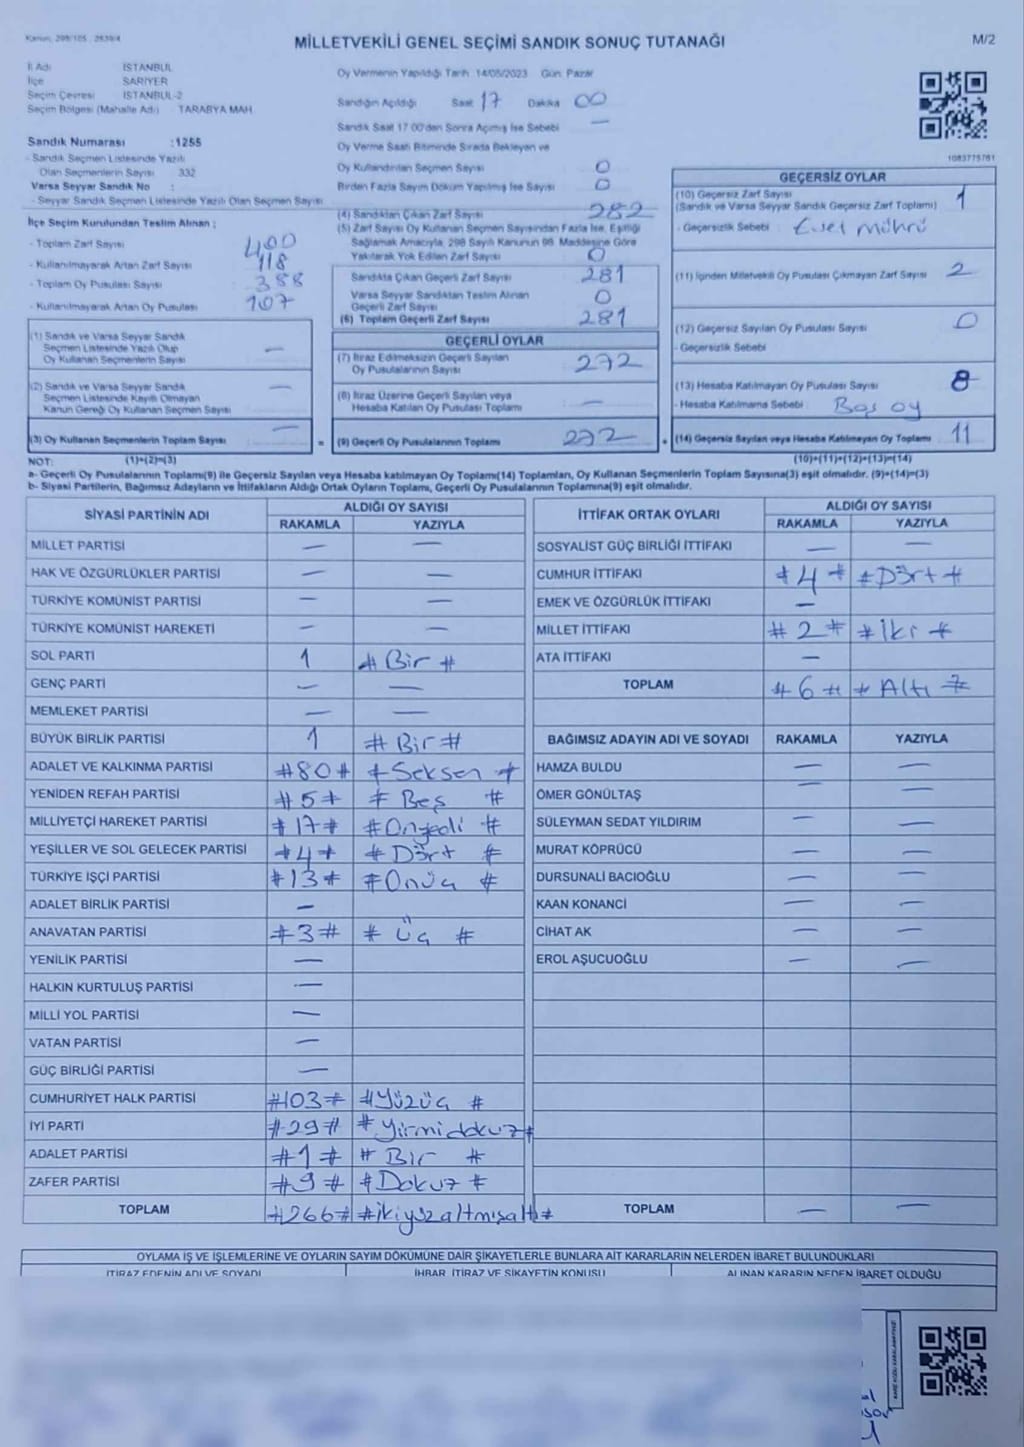 Kanun, 298/105 , 2839/4
MİLLETVEKİLİ GENEL SEÇİMİ SANDIK SONUÇ TUTANAĞI
M/2
İl Adı İSTANBUL
İlçe SARIYER
Seçim Çevresi İSTANBUL-2
Seçim Bölgesi (Mahalle Adı) TARABYA MAH.
Sandık Numarası :1255
- Sandık Seçmen Listesinde Yazılı
Olan Seçmenlerin Sayısı 332
Varsa Seyyar Sandık No :
- Seyyar Sandık Seçmen Listesinde Yazılı Olan Seçmen Sayısı
Oy Vermenin Yapıldığı Tarih 14/05/2023 Gün: Pazar
Sandığın Açıldığı Saat 17 Dakika 00
Sandık Saat 17.00'den Sonra Açılmış İse Sebebi —
Oy Verme Saati Bitiminde Sırada Bekleyen ve
Oy Kullandırılan Seçmen Sayısı 0
Birden Fazla Sayım Döküm Yapılmış İse Sayısı 0
1083775761
İlçe Seçim Kurulundan Teslim Alınan ;
- Toplam Zarf Sayısı 400
- Kullanılmayarak Artan Zarf Sayısı 118
- Toplam Oy Pusulası Sayısı 388
- Kullanılmayarak Artan Oy Pusulası 107
(1) Sandık ve Varsa Seyyar Sandık
Seçmen Listesinde Yazılı Olup
Oy Kullanan Seçmenlerin Sayısı —
(2) Sandık ve Varsa Seyyar Sandık
Seçmen Listesinde Kayıtlı Olmayan
Kanun Gereği Oy Kullanan Seçmen Sayısı —
(3) Oy Kullanan Seçmenlerin Toplam Sayısı —
(4) Sandıktan Çıkan Zarf Sayısı 282
(5) Zarf Sayısı Oy Kullanan Seçmen Sayısından Fazla İse, Eşitliği
Sağlamak Amacıyla, 298 Sayılı Kanunun 98. Maddesine Göre
Yakılarak Yok Edilen Zarf Sayısı 0
Sandıkta Çıkan Geçerli Zarf Sayısı 281
Varsa Seyyar Sandıktan Teslim Alınan
Geçerli Zarf Sayısı 0
(6) Toplam Geçerli Zarf Sayısı 281
GEÇERLİ OYLAR
(7) İtiraz Edilmeksizin Geçerli Sayılan
Oy Pusulalarının Sayısı 272
(8) İtiraz Üzerine Geçerli Sayılan veya
Hesaba Katılan Oy Pusulası Toplamı —
= (9) Geçerli Oy Pusulalarının Toplamı 272 +
GEÇERSİZ OYLAR
(10) Geçersiz Zarf Sayısı
(Sandık ve Varsa Seyyar Sandık Geçersiz Zarf Toplamı) 1
- Geçersizlik Sebebi : Evet mührü
(11) İçinden Milletvekili Oy Pusulası Çıkmayan Zarf Sayısı 2
(12) Geçersiz Sayılan Oy Pusulası Sayısı 0
- Geçersizlik Sebebi
(13) Hesaba Katılmayan Oy Pusulası Sayısı 8
- Hesaba Katılmama Sebebi : Boş oy
(14) Geçersiz Sayılan veya Hesaba Katılmayan Oy Toplamı 11
NOT: (1)+(2)=(3)
(10)+(11)+(12)+(13)=(14)
a- Geçerli Oy Pusulalarının Toplamı(9) ile Geçersiz Sayılan veya Hesaba katılmayan Oy Toplamı(14) Toplamları, Oy Kullanan Seçmenlerin Toplam Sayısına(3) eşit olmalıdır. (9)+(14)=(3)
b- Siyasi Partilerin, Bağımsız Adayların ve İttifakların Aldığı Ortak Oyların Toplamı, Geçerli Oy Pusulalarının Toplamına(9) eşit olmalıdır.
SİYASİ PARTİNİN ADI ALDIĞI OY SAYISI
RAKAMLA YAZIYLA
MİLLET PARTİSİ — —
HAK VE ÖZGÜRLÜKLER PARTİSİ — —
TÜRKİYE KOMÜNİST PARTİSİ — —
TÜRKİYE KOMÜNİST HAREKETİ — —
SOL PARTİ 1 # Bir #
GENÇ PARTİ — —
MEMLEKET PARTİSİ — —
BÜYÜK BİRLİK PARTİSİ 1 # Bir #
ADALET VE KALKINMA PARTİSİ #80# # Seksen #
YENİDEN REFAH PARTİSİ #5# # Beş #
MİLLİYETÇİ HAREKET PARTİSİ #17# #Onyedi #
YEŞİLLER VE SOL GELECEK PARTİSİ #4# # Dört #
TÜRKİYE İŞÇİ PARTİSİ #13# #Onüç #
ADALET BİRLİK PARTİSİ —
ANAVATAN PARTİSİ #3# # Üç #
YENİLİK PARTİSİ —
HALKIN KURTULUŞ PARTİSİ —
MİLLİ YOL PARTİSİ —
VATAN PARTİSİ —
GÜÇ BİRLİĞİ PARTİSİ —
CUMHURİYET HALK PARTİSİ #103# #Yüzüç #
İYİ PARTİ #29# # Yirmidokuz#
ADALET PARTİSİ #1# # Bir #
ZAFER PARTİSİ #9# # Dokuz #
TOPLAM #266# #ikiyüzaltmışaltı#
İTTİFAK ORTAK OYLARI ALDIĞI OY SAYISI
RAKAMLA YAZIYLA
SOSYALİST GÜÇ BİRLİĞİ İTTİFAKI — —
CUMHUR İTTİFAKI #4# #Dört#
EMEK VE ÖZGÜRLÜK İTTİFAKI —
MİLLET İTTİFAKI #2# #İki #
ATA İTTİFAKI —
TOPLAM #6# # Altı #
BAĞIMSIZ ADAYIN ADI VE SOYADI RAKAMLA YAZIYLA
HAMZA BULDU — —
ÖMER GÖNÜLTAŞ — —
SÜLEYMAN SEDAT YILDIRIM — —
MURAT KÖPRÜCÜ — —
DURSUNALİ BACIOĞLU — —
KAAN KONANCİ — —
CİHAT AK — —
EROL AŞUCUOĞLU — —
TOPLAM — —
OYLAMA İŞ VE İŞLEMLERİNE VE OYLARIN SAYIM DÖKÜMÜNE DAİR ŞİKAYETLERLE BUNLARA AİT KARARLARIN NELERDEN İBARET BULUNDUKLARI
İTİRAZ EDENİN ADI VE SOYADI İHBAR, İTİRAZ VE ŞİKAYETİN KONUSU ALINAN KARARIN NEDEN İBARET OLDUĞU